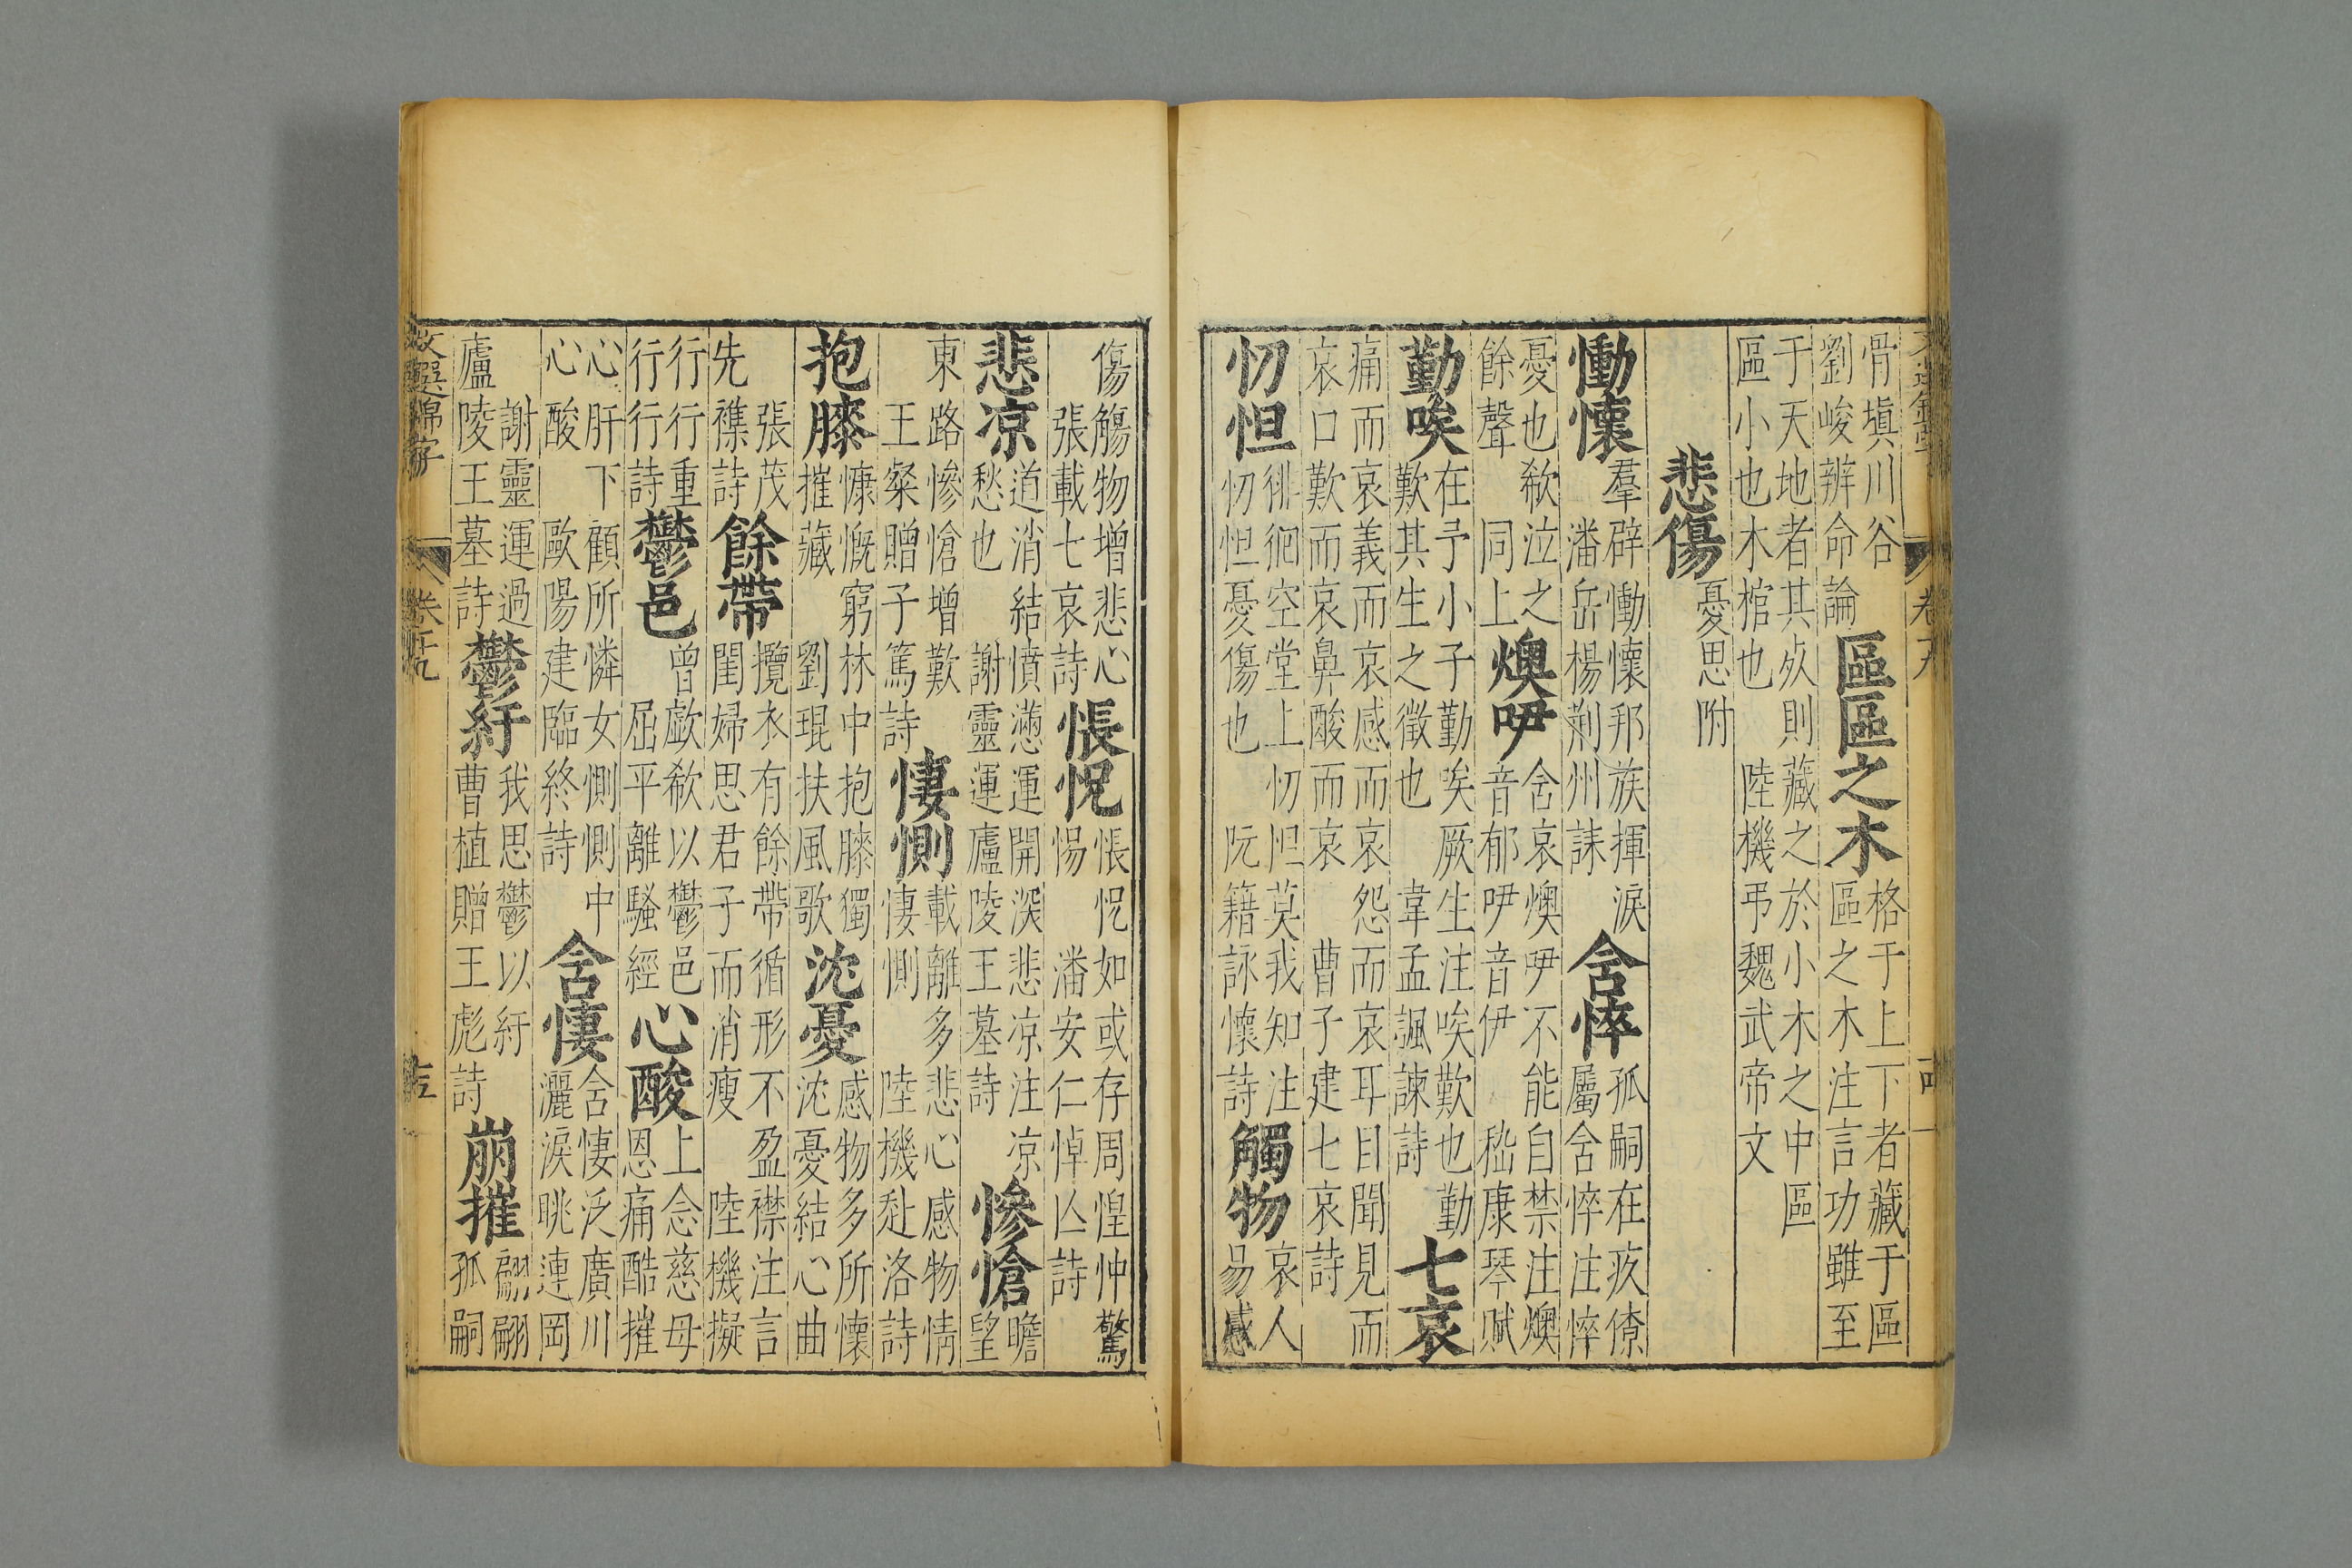 骨塡川谷
劉峻辨命論
區區之木
格于上下者藏于區
區之木注言功雖至
于天地者其夊則藏之於小木之中區
區小也木棺也 陸機弔魏武帝文
悲傷
憂思附
慟懷
羣辟慟懷邦族揮淚
潘岳楊荊州誄
含悴
孤嗣在疚僚
屬含悴注悴
憂也欷泣之
餘聲 同上
燠吚
含哀燠吚不能自禁注燠
音郁吚音伊 嵇康琴賦
勤唉
在予小子勤唉厥生注唉歎也勤
歎其生之徵也 韋孟諷諫詩
七哀
痛而哀義而哀感而哀怨而哀耳目聞見而
哀口歎而哀鼻酸而哀 曹子建七哀詩
忉怛
徘徊空堂上忉怛莫我知注
忉怛憂傷也 阮籍詠懷詩
觸物
哀人
易感
傷觴物增悲心
張載七哀詩
悵怳
悵怳如或存周惶忡驚
惕 潘安仁悼亾詩
悲凉
道消結憤懣運開深悲凉注凉
愁也 謝靈運廬陵王墓詩
慘愴
瞻
望
東路慘愴增歎
王粲贈子篤詩
悽惻
載離多悲心感物情
悽惻 陸機赴洛詩
抱膝
慷慨窮林中抱膝獨
摧藏 劉琨扶風歌
沈憂
感物多所懷
沈憂結心曲
張茂
先襍詩
餘帶
攬衣有餘帶循形不盈襟注言
閨婦思君子而消瘦 陸機擬
行行重
行行詩
鬱邑
曾歔欷以鬱邑
屈平離騷經
心酸
上念慈母
恩痛酷摧
心肝下顧所憐女惻惻中
心酸 歐陽建臨終詩
含悽
含悽泛廣川
灑淚眺連岡
謝靈運過
廬陵王墓詩
鬱紆
我思鬱以紆
曹植贈王彪詩
崩摧
翩翩
孤嗣
文選錦字 卷十九